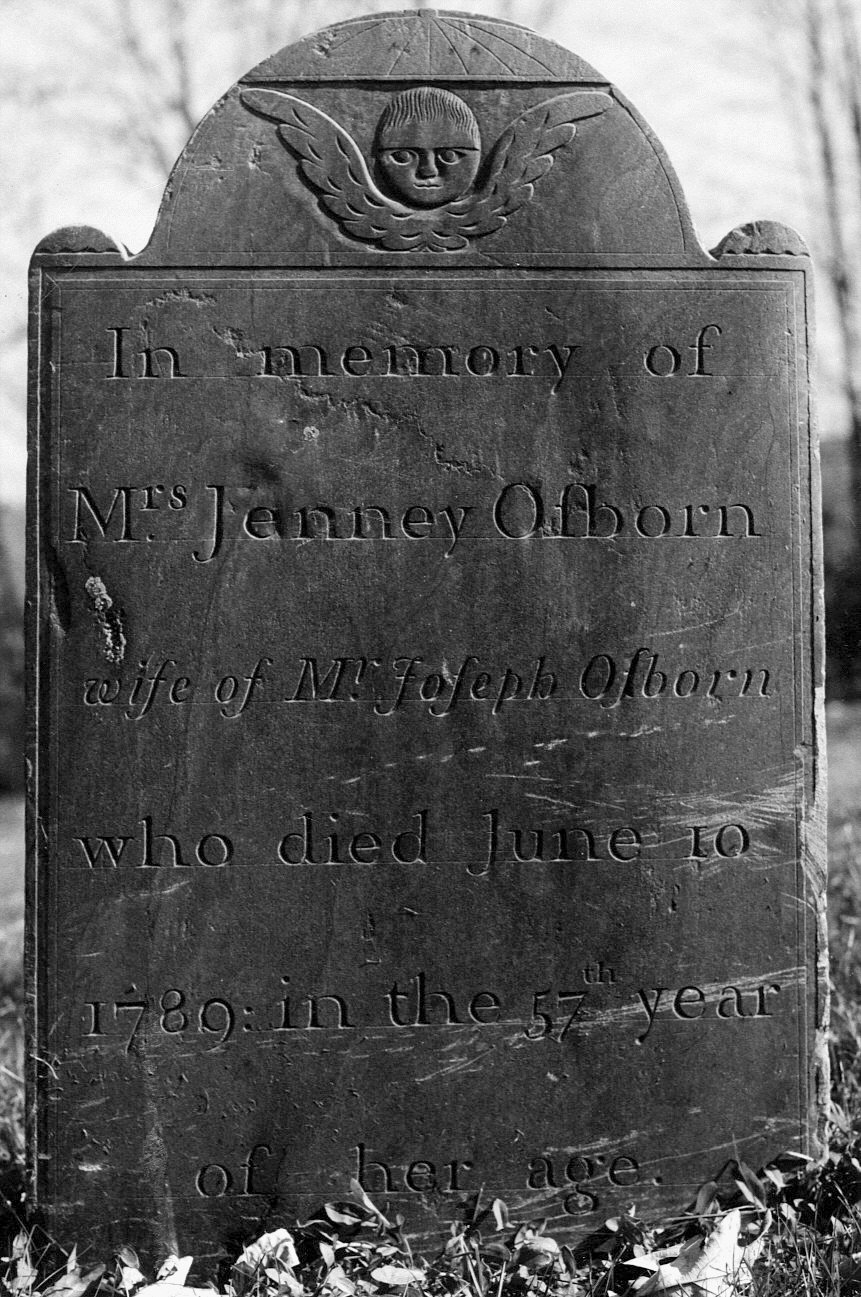 In memory of
Mrs. Jenney Oſborn
wife of Mr Joſeph Oſborn
who died June 10
1789: in the 57th year
of her age.